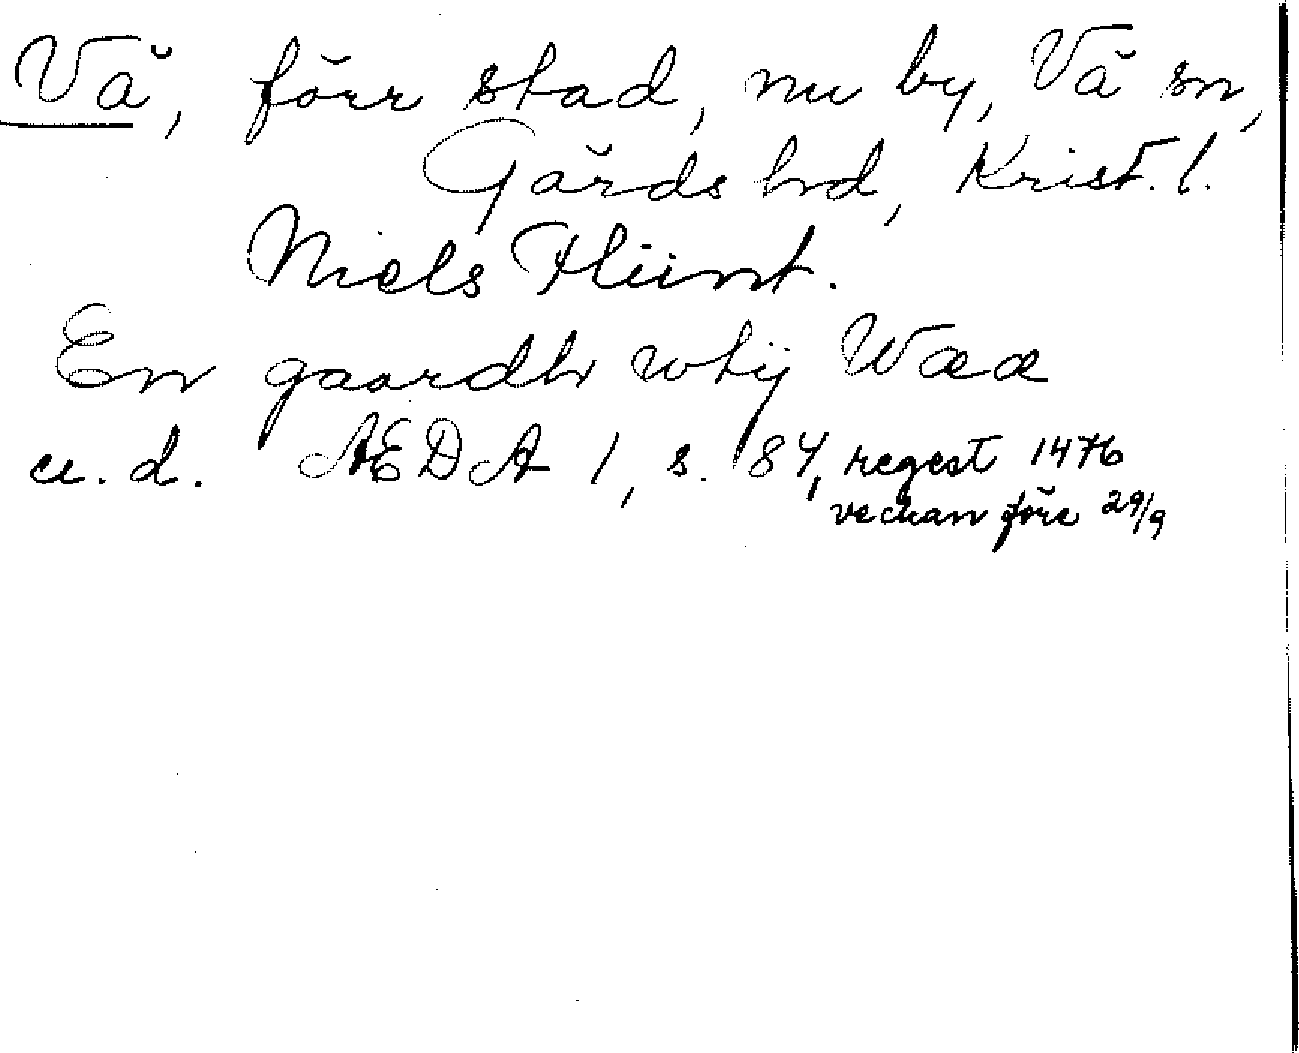 Vä, förr stad, nu by, Vä sn,
Gärds hd, Krist. l.
Niels Fliint.
En gaardh whij Waa
u. d. ÆDA 1, s. 84, regest 1476
veckan före 29/9